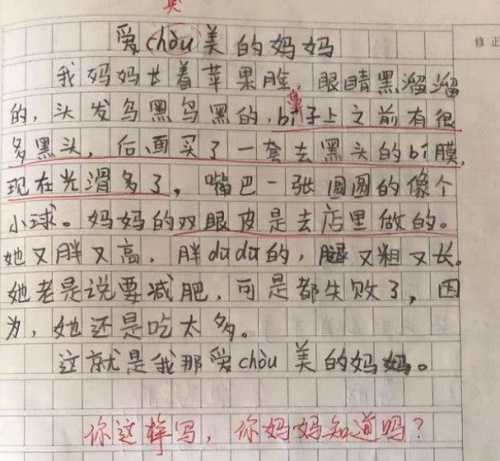 臭
爱chòu美的妈妈
我妈妈长着苹果脸，眼睛黑溜溜
的，头发乌黑乌黑的，bí子上之前有很
鼻
多黑头，后面买了一套去黑头的bí膜，
现在光滑多了，嘴巴一张圆圆的像个
小球。妈妈的双眼皮是去店里做的。
她又胖又高，胖dūdū的，腿又粗又长。
她老是说要减肥，可是都失败了，因
为，她还是吃太多。
这就是我那爱chòu美的妈妈。
你这样写，你妈妈知道吗？
修正